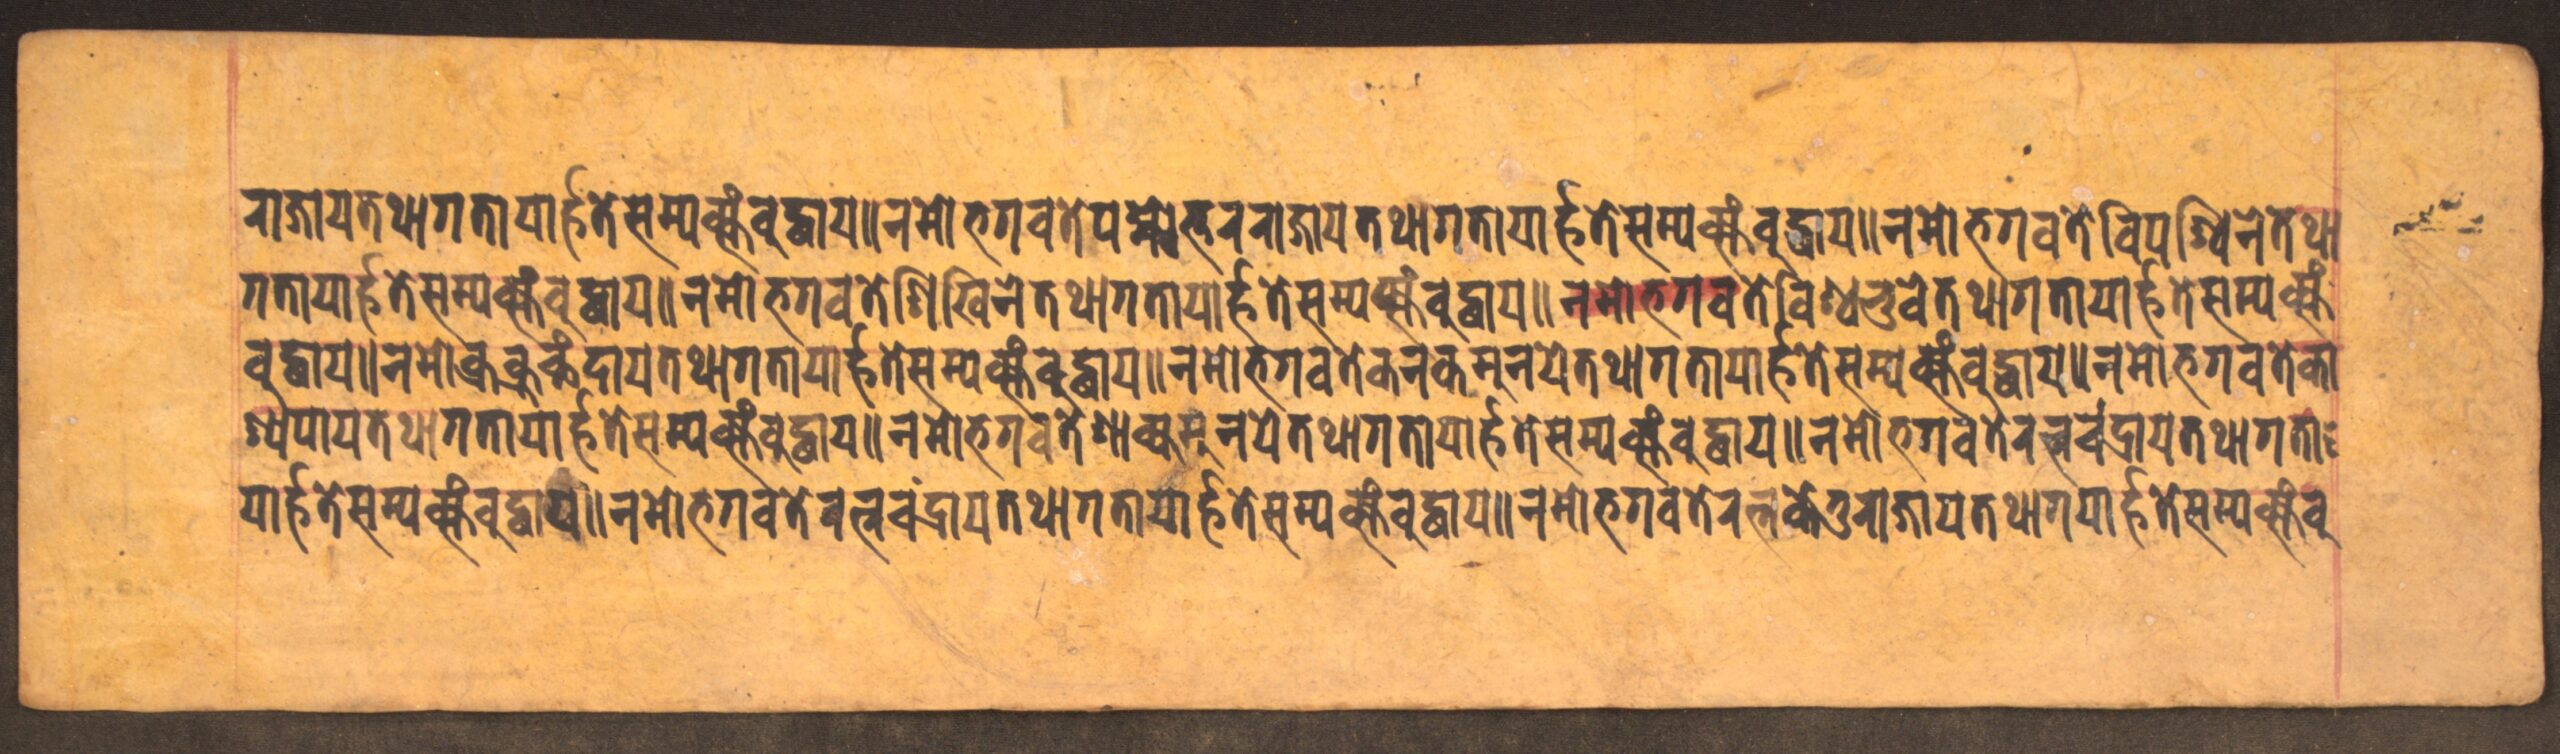 राजायतथागतायार्हतेसम्यक्संबुद्धाय॥नमोभगवतेपद्मोत्तरराजायतथागतायार्हतेसम्यक्संबुद्धाय॥नमोभगवतेविपश्यिनेतथा
गतायार्हतेसम्यक्संबुद्धाय॥नमोभगवतेशिखिनेतथागतायार्हतेसम्यक्संबुद्धाय॥नमोभगवतेविश्वभुवेतथागतायार्हतेसम्यक्सं
बुद्धाय॥नमोक्रकुछंदायतथागतायार्हतेसम्यक्संबुद्धाय॥नमोभगवतेकनकमुनयेतथागतायार्हतेसम्यक्संबुद्धाय॥नमोभगवतेका
श्यपायतथागतायार्हतेसम्यक्संबुद्धाय॥नमोभगवतेशाक्यमुनयेतथागतायार्हतेसम्यक्संबुद्धाय॥नमोभगवतेरत्नचंद्रायतथागता
यार्हतेसम्यक्संबुद्धाय॥नमोभगवतेरत्नचंद्रायतथागतायार्हतेसम्यक्संबुद्धाय॥नमोभगवतेरत्नकेतुराजायतथागयार्हतेसम्यक्संबु